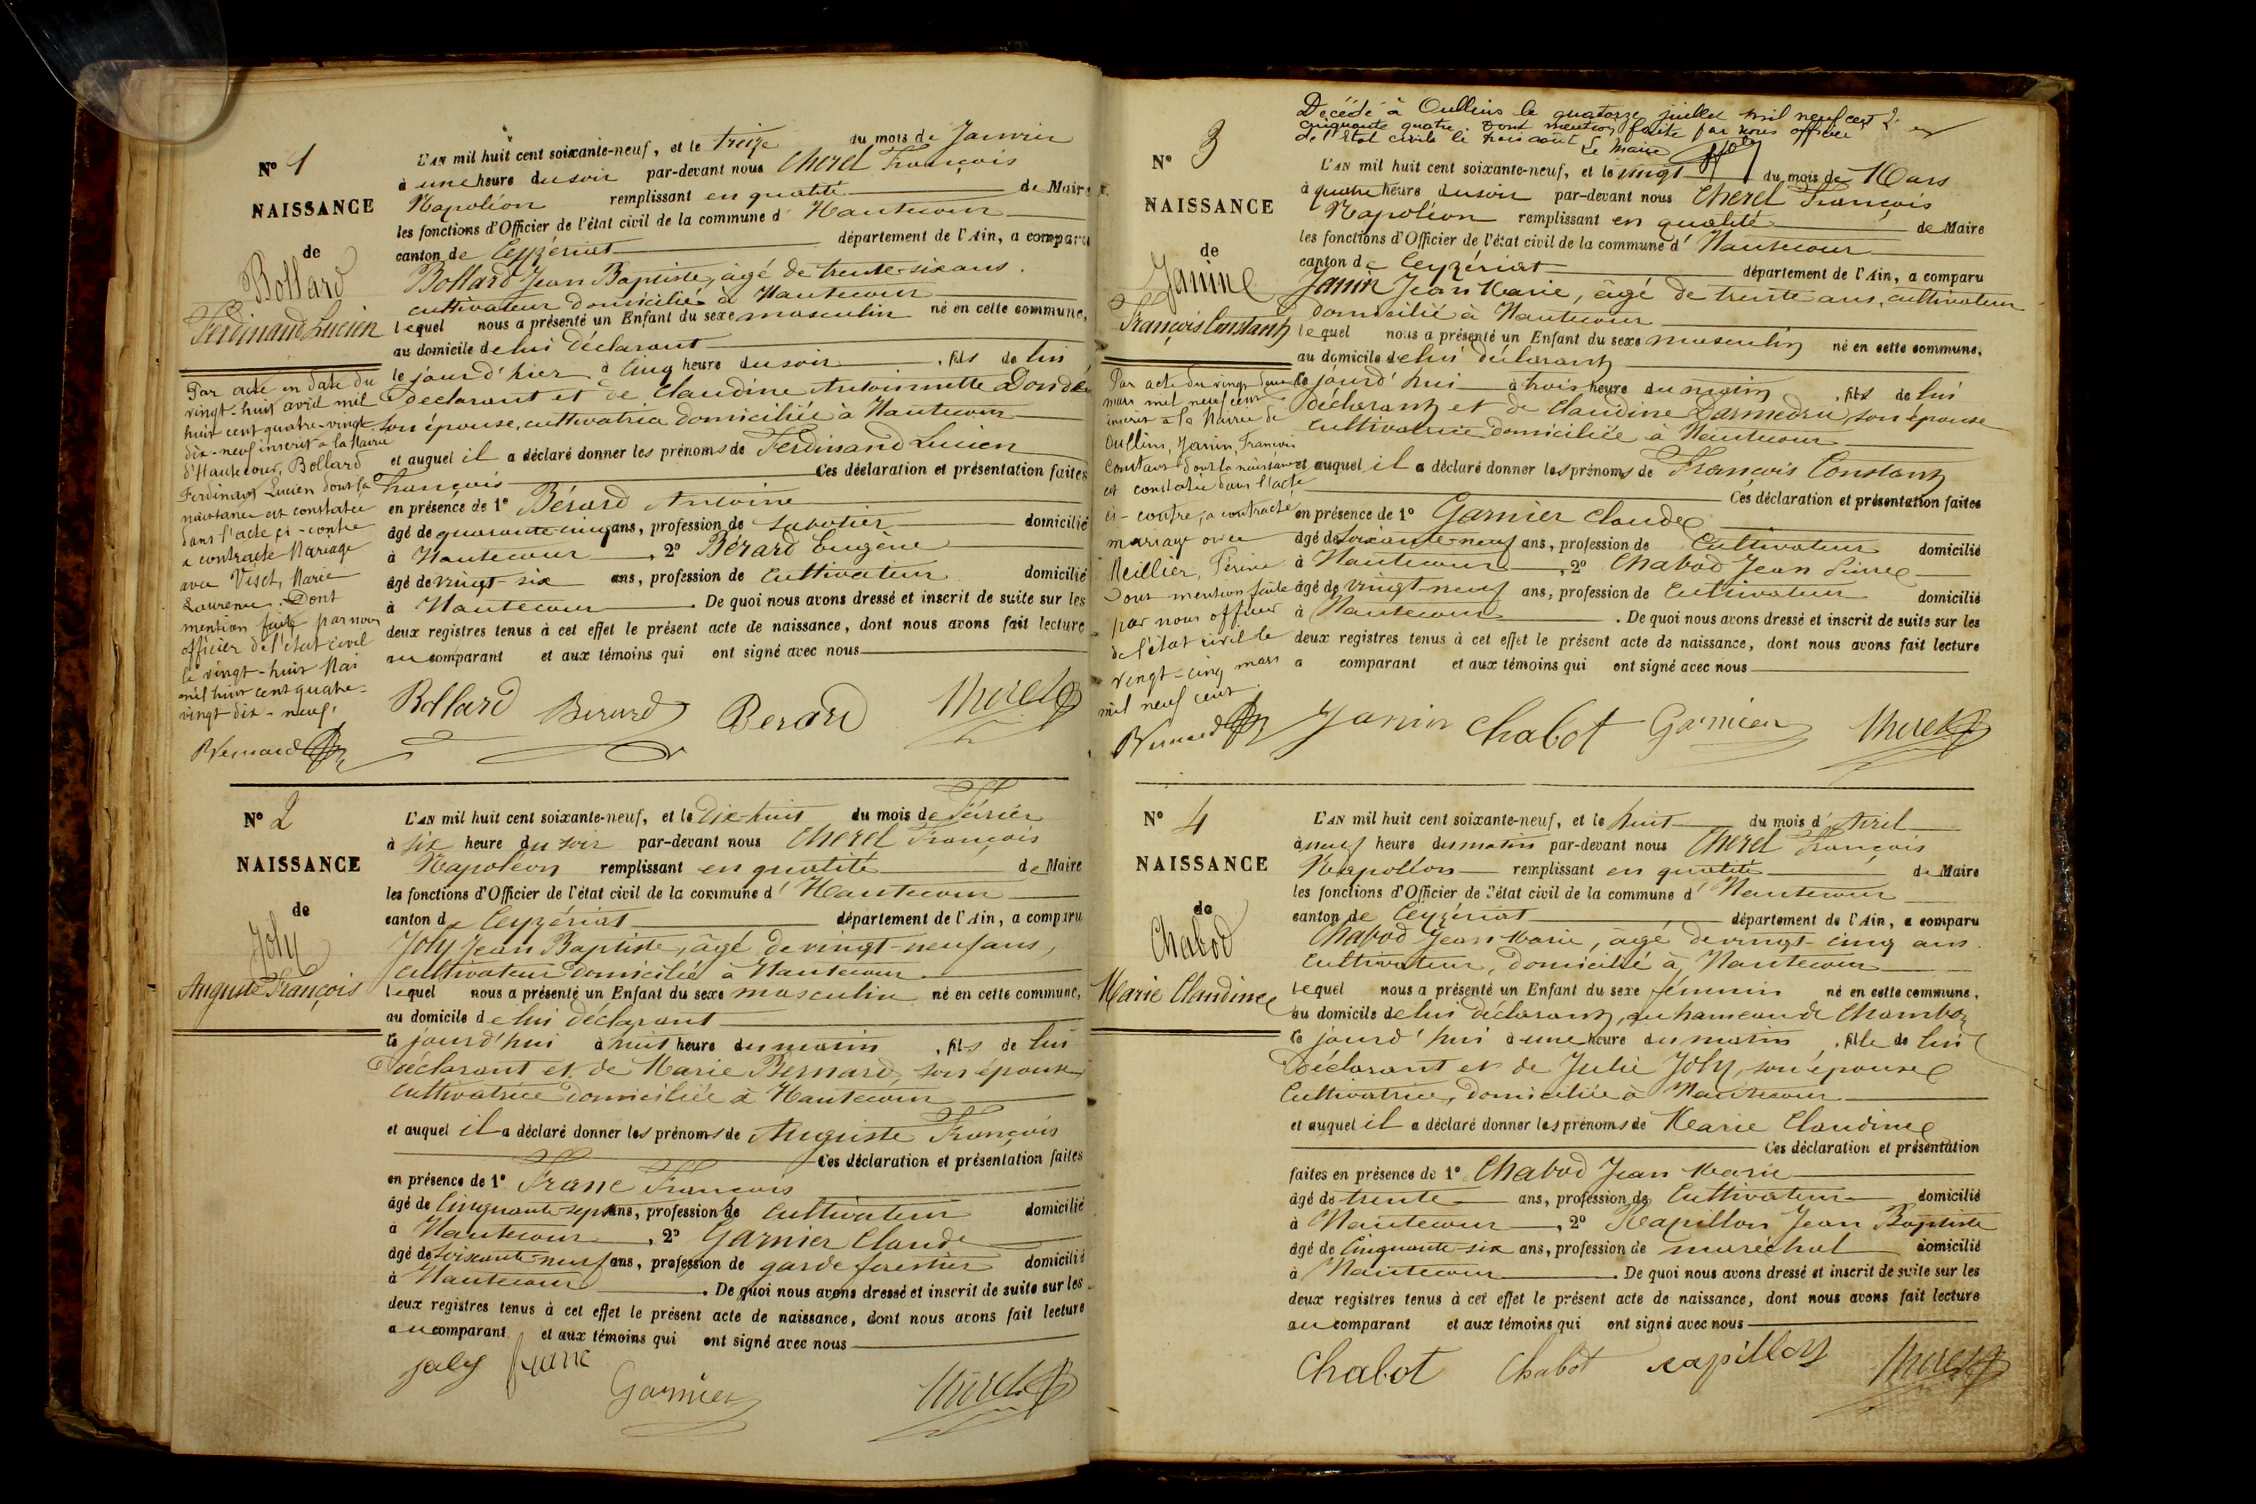 N° 1
NAISSANCE
de
Bollard
Ferdinand Lucien
L'AN mil huit cent soixante-neuf, et le treize du mois de Janvier
à une heure du soir par-devant nous Cherel François
Napoléon remplissant en qualité de Maire
les fonctions d'Officier de l'état civil de la commune d'Hautecour
canton de Ceyzériat département de l'Ain, a comparu
Bollard Jean Baptiste, âgé de trente-six ans.
cultivateur domicilié à Hautecour
lequel nous a présenté un Enfant du sexe masculin né en cette commune,
au domicile de lui déclarant
le jourd'hier à cinq heure du soir, fils de lui
déclarant et de Claudine Antoinette
son épouse, cultivatrice domiciliée à Hautecour
et auquel il a déclaré donner les prénoms de Ferdinand Lucien
François Ces déclaration et présentation faites
en présence de 1° Bérard Antoine
âgé de quarante-cinq ans, profession de sabotier domicilié
à Hautecour, 2° Bérard Eugène
âgé de vingt-six ans, profession de cultivateur domicilié
à Hautecour. De quoi nous avons dressé et inscrit de suite sur les
deux registres tenus à cet effet le présent acte de naissance, dont nous avons fait lecture
au comparant et aux témoins qui ont signé avec nous
Bollard Berard Berard Cherel
Par acte en date du
vingt-huit avril mil
huit cent quatre-vingt
dix-neuf inscrit à la Mairie
d'Hautecour, Bollard
Ferdinand Lucien dont la
naissance est constatée
dans l'acte ci-contre
a contracté Mariage
avec Marie
Laurence. Dont
mention faite par nous
officier de l'état civil
le vingt-huit Mai
mil huit cent quatre-
vingt dix-neuf.
Bernard
N° 2
NAISSANCE
de
Joly
Auguste François
L'AN mil huit cent soixante-neuf, et le dix-huit du mois de Février
à six heure du soir par-devant nous Cherel François
Napoléon remplissant en qualité de Maire
les fonctions d'Officier de l'état civil de la commune d'Hautecour
canton de Ceyzériat département de l'Ain, a comparu
Joly Jean Baptiste, âgé de vingt-neuf ans,
cultivateur domicilié à Hautecour
lequel nous a présenté un Enfant du sexe masculin né en cette commune,
au domicile de lui déclarant
le jourd'hui à huit heure du matin, fils de lui
déclarant et de Marie Bernard, son épouse
cultivatrice domiciliée à Hautecour
et auquel il a déclaré donner les prénoms de Auguste François
Ces déclaration et présentation faites
en présence de 1° Franc François
âgé de cinquante-sept ans, profession de cultivateur domicilié
à Hautecour, 2° Garnier Claude
âgé de soixante-neuf ans, profession de garde forestier domicilié
à Hautecour. De quoi nous avons dressé et inscrit de suite sur les
deux registres tenus à cet effet le présent acte de naissance, dont nous avons fait lecture
au comparant et aux témoins qui ont signé avec nous
joly franc Garnier Cherel
Décédé à Oullins le quatorze juillet mil neuf cent
cinquante quatre. Dont mention faite par nous officier
de l'Etat civile le trois août Le Maire
N° 3
NAISSANCE
de
Janin
François Constant
L'AN mil huit cent soixante-neuf, et le vingt du mois de Mars
à quatre heure du soir par-devant nous Cherel François
Napoléon remplissant en qualité de Maire
les fonctions d'Officier de l'état civil de la commune d'Hautecour
canton de Ceyzériat département de l'Ain, a comparu
Janin Jean Marie, âgé de trente ans, cultivateur
domicilié à Hautecour
lequel nous a présenté un Enfant du sexe masculin né en cette commune,
au domicile de lui déclarant
le jourd'hui à trois heure du matin, fils de lui
déclarant et de Claudine Darmedru, son épouse
cultivatrice domiciliée à Hautecour
et auquel il a déclaré donner les prénoms de François Constant
Ces déclaration et présentation faites
en présence de 1° Garnier Claude
âgé de soixante-neuf ans, profession de Cultivateur domicilié
à Hautecour, 2° Chabod Jean Pierre
âgé de vingt-neuf ans, profession de Cultivateur domicilié
à Hautecour. De quoi nous avons dressé et inscrit de suite sur les
deux registres tenus à cet effet le présent acte de naissance, dont nous avons fait lecture
a comparant et aux témoins qui ont signé avec nous
Janin Chabot Garnier Cherel
Par acte du vingt deux
mars mil neuf cent
inscrit à la Mairie de
Oullins, Janin, François
Constant dont la naissance
est constatée dans l'acte
ci-contre, a contracté
mariage avec
Meillier, Périne
Dont mention faite
par nous officier
de l'état civil le
vingt-cinq mars
mil neuf cent.
Bernard
N° 4
NAISSANCE
de
Chabod
Marie Claudine
L'AN mil huit cent soixante-neuf, et le huit du mois d'Avril
à neuf heure du matin par-devant nous Cherel François
Napoléon remplissant en qualité de Maire
les fonctions d'Officier de l'état civil de la commune d'Hautecour
canton de Ceyzériat département de l'Ain, a comparu
Chabod Jean Marie, âgé de vingt-cinq ans.
Cultivateur, domicilié à Hautecour
lequel nous a présenté un Enfant du sexe féminin né en cette commune,
au domicile de lui déclarant, au hameau de Chambod
le jourd'hui à une heure du matin, fille de lui
déclarant et de Julie Joly, son épouse
Cultivatrice, domiciliée à Hautecour
et auquel il a déclaré donner les prénoms de Marie Claudine
Ces déclaration et présentation
faites en présence de 1° Chabod Jean Marie
âgé de trente ans, profession de Cultivateur domicilié
à Hautecour, 2° Rapillon Jean Baptiste
âgé de cinquante-six ans, profession de maréchal domicilié
à Hautecour. De quoi nous avons dressé et inscrit de suite sur les
deux registres tenus à cet effet le présent acte de naissance, dont nous avons fait lecture
au comparant et aux témoins qui ont signé avec nous
Chabot Chabot rapillon Cherel